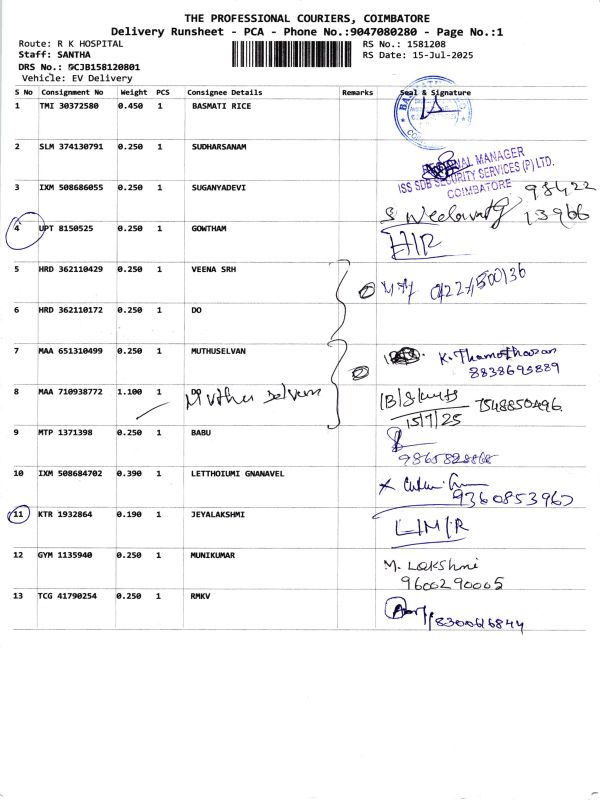 THE PROFESSIONAL COURIERS, COIMBATORE
Delivery Runsheet - PCA - Phone No.:9047080280 - Page No.:1
Route: R K HOSPITAL
Staff: SANTHA
DRS No.: BCJB158120801
Vehicle: EV Delivery
RS No.: 1581208
RS Date: 15-Jul-2025
S No Consignment No Weight PCS Consignee Details Remarks Seal & Signature
1 TMI 30372580 0.450 1 BASMATI RICE
2 SLM 374130791 0.250 1 SUDHARSANAM
MANAGER
ISS SDB SECURITY SERVICES (P) LTD.
COIMBATORE
3 IXM 508686055 0.250 1 SUGANYADEVI
98422
13966
4 UPT 8150525 0.250 1 GOWTHAM
5 HRD 362110429 0.250 1 VEENA SRH
6 HRD 362110172 0.250 1 DO
7 MAA 651310499 0.250 1 MUTHUSELVAN K. Thamotharan
8838695889
8 MAA 710938772 1.100 1 DO Muthu selvam
15/7/25 7548850496
9 MTP 1371398 0.250 1 BABU
10 IXM 508684702 0.390 1 LETTHOIUMI GNANAVEL
9360853967
11 KTR 1932864 0.190 1 JEYALAKSHMI
L/M/R
12 GYM 1135940 0.250 1 MUNIKUMAR M. Lakshmi
9600290005
13 TCG 41790254 0.250 1 RMKV
8300616844